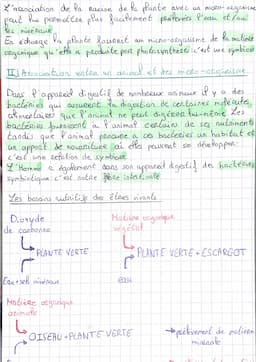 L'association de la racine de la plante avec un micro-organisme
peut lui permettre plus facilement prélever l'eau et/ou
les minéraux.
En échange la plante fournit au micro-organisme de la matière
organique qu'elle a produite par photosynthèse : c'est une symbiose
II) Association entre un animal et des micro-organisme
Dans l'appareil digestif de nombreux animaux il y a des
bactéries qui assurent la digestion de certaines molécules
alimentaires que l'animal ne peut digérer lui-même. Les
bactéries fournissent à l'animal certains de ses nutriments
tandis que l'animal procure à ces bactéries un habitat et
un apport de nourriture où elles peuvent se développer.
c'est une relation de symbiose
L'Homme a également dans son appareil digestif des bactéries
symbiotiques : c'est notre flore intestinale
Les besoins nutritifs des êtres vivants
Dioxyde de carbone
Matière organique végétal
PLANTE VERTE
PLANTE VERTE + ESCARGOT
Eau + sels minéraux
eau
Matière organique animale
OISEAU + PLANTE VERTE
prélèvement de matière